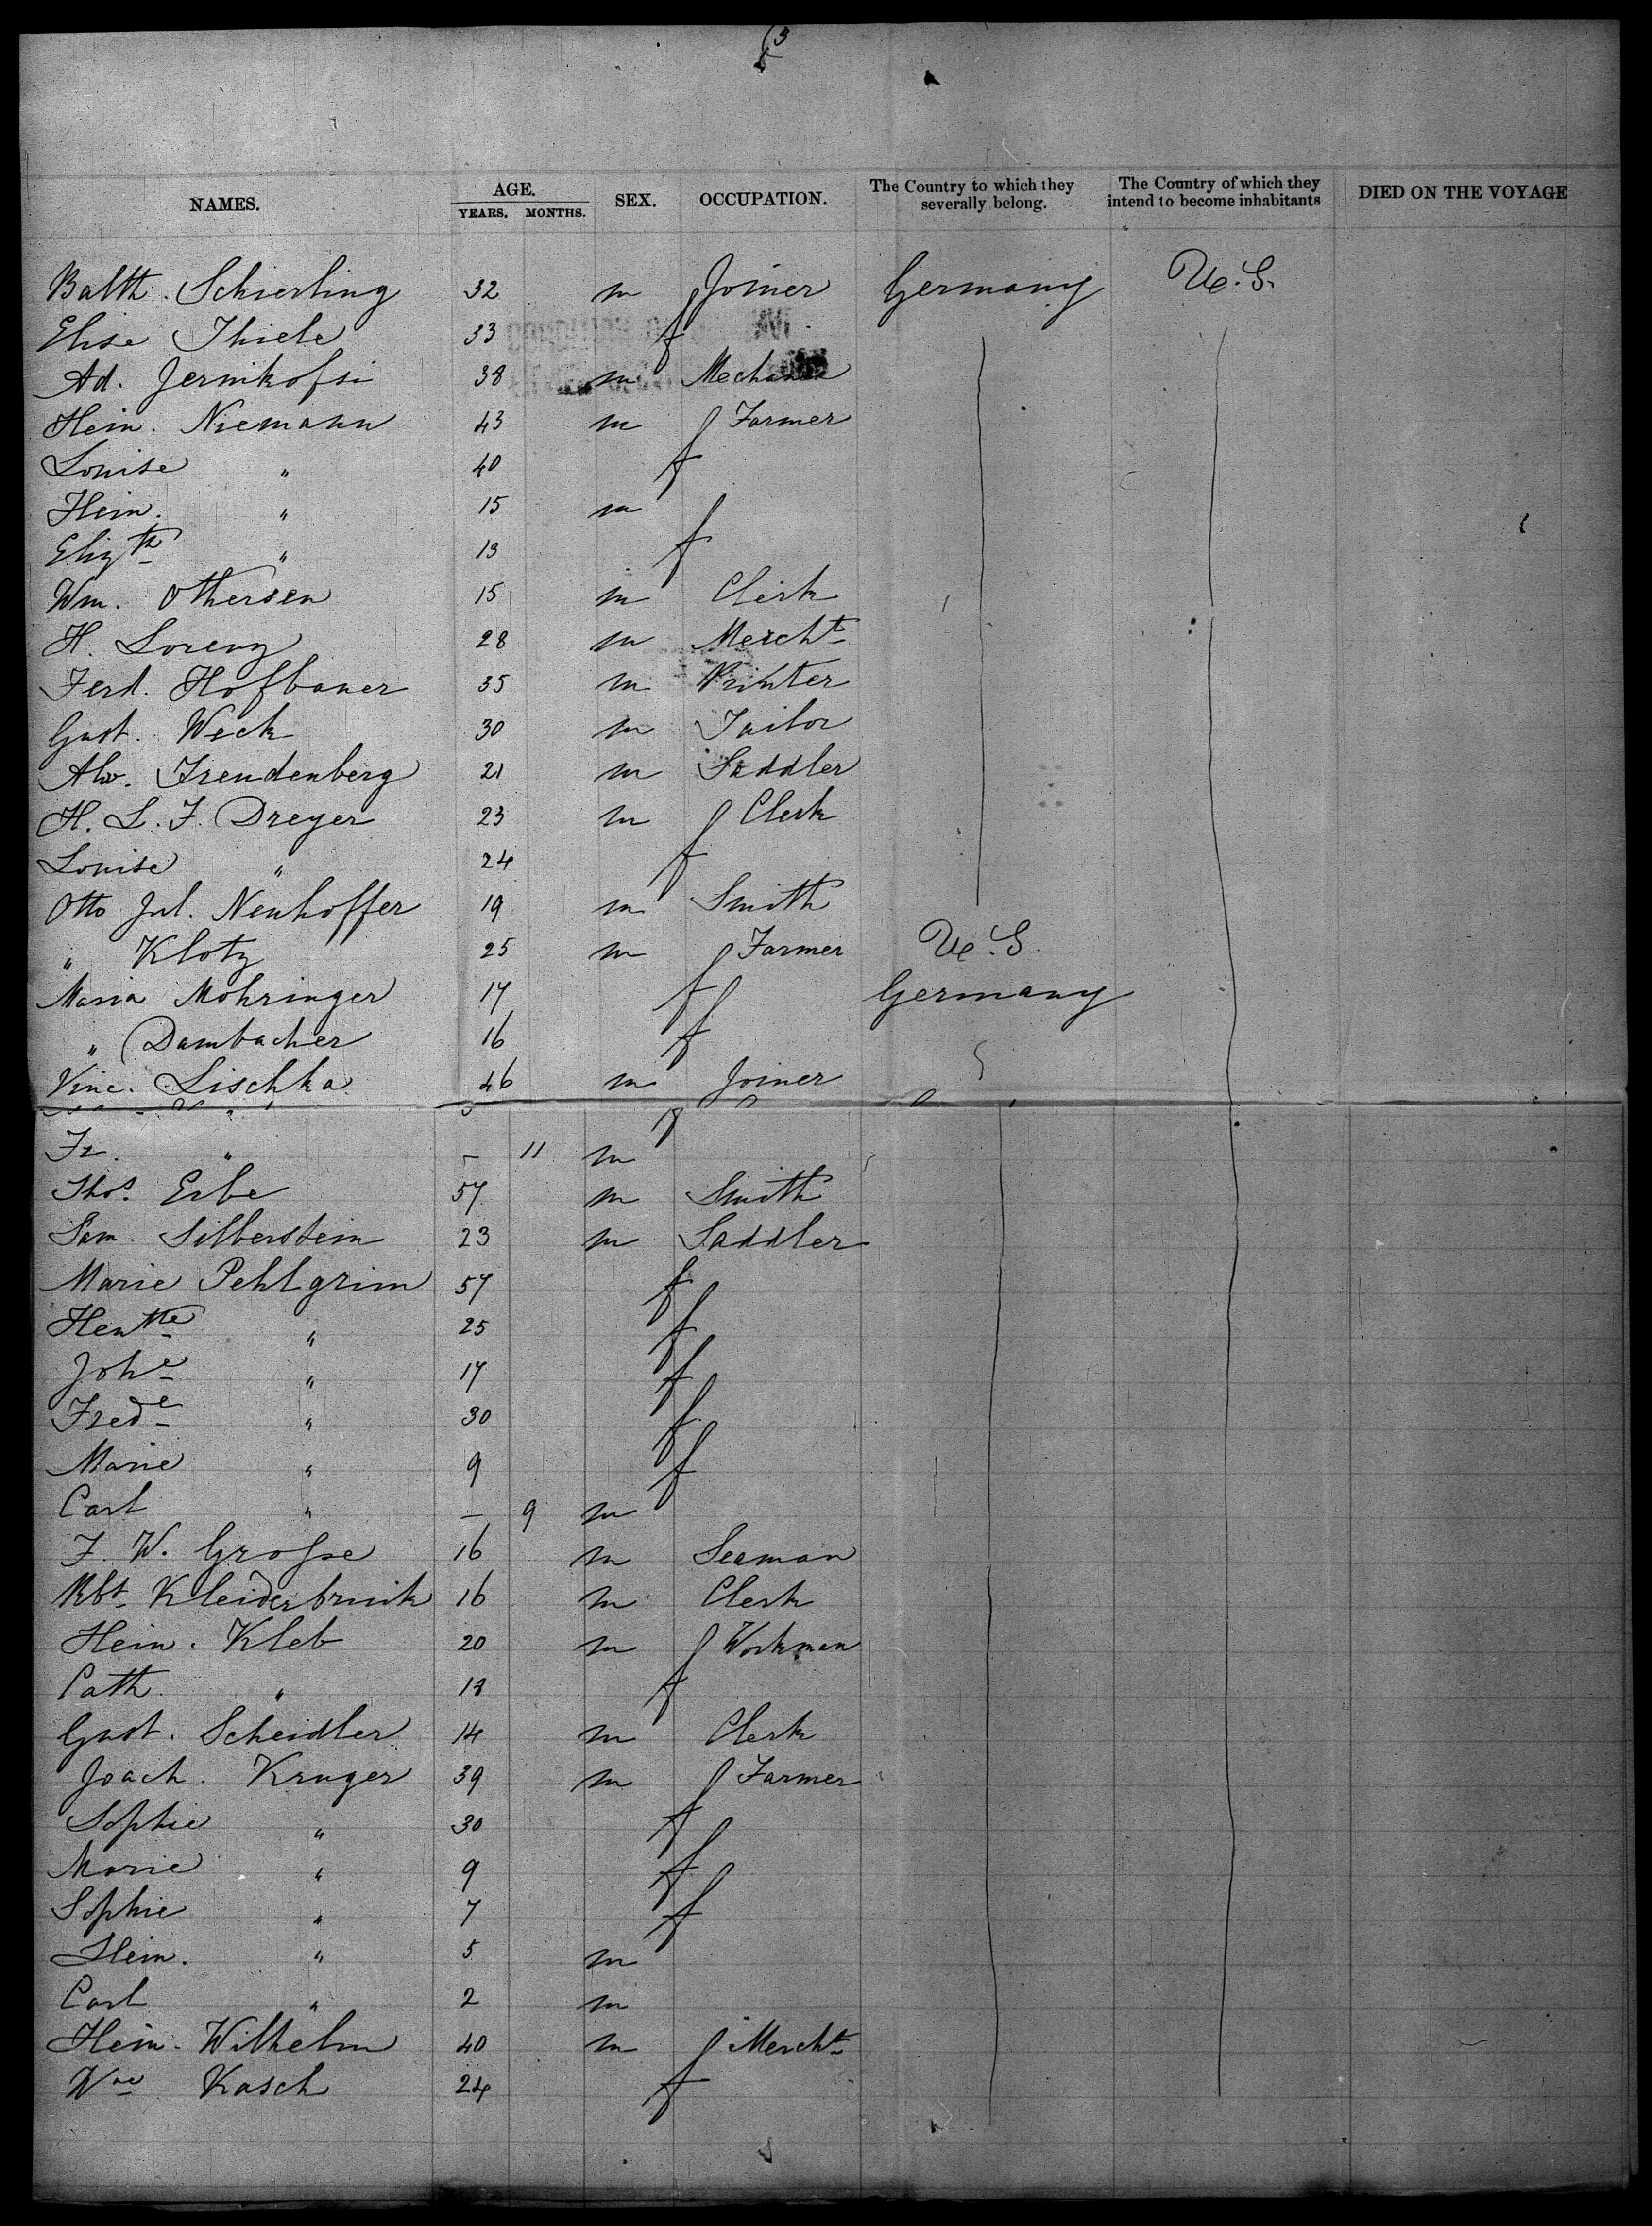 NAMES. AGE. YEARS. MONTHS. SEX. OCCUPATION. The Country to which they severally belong. The Country of which they intend to become inhabitants DIED ON THE VOYAGE
Balth. Schierling 32 m Joiner Germany U.S.
Elise Thiele 33 f
Ad. Jernikofsi 38 m Mechanic
Hein. Niemann 43 m Farmer
Louise " 40 f
Hein. " 15 m
Elizth " 13 f
Wm. Othersen 15 m Clerk
H. Lorenz 28 m Mercht
Ferd. Hofbauer 35 m Printer
Gust. Weck 30 m Tailor
Alw. Freudenberg 21 m Saddler
H. L. F. Dreyer 23 m Clerk
Louise " 24 f
Otto Jul. Neuhoffer 19 m Smith
" Klotz 25 m Farmer U.S.
Maria Mohringer 17 f Germany
" Dambacher 16 f
Vinc. Lischka 46 m Joiner
Fr. " – 11 m
Thos. Erbe 57 m Smith
Sam. Silberstein 23 m Saddler
Marie Pehlgrim 57 f
Hentte " 25 f
Johe " 17 f
Frede " 30 f
Marie " 9 f
Carl " – 9 m
F. W. Grosse 16 m Seaman
Rbt Kleiderbrink 16 m Clerk
Hein. Kleb 20 m Workman
Cath. " 18 f
Gust. Scheidler 14 m Clerk
Joach. Kruger 39 m Farmer
Sophie " 30 f
Marie " 9 f
Sophie " 7 f
Hein. " 5 m
Carl " 2 m
Hein. Wilhelm 40 m Mercht
Wne Kasch 24 f